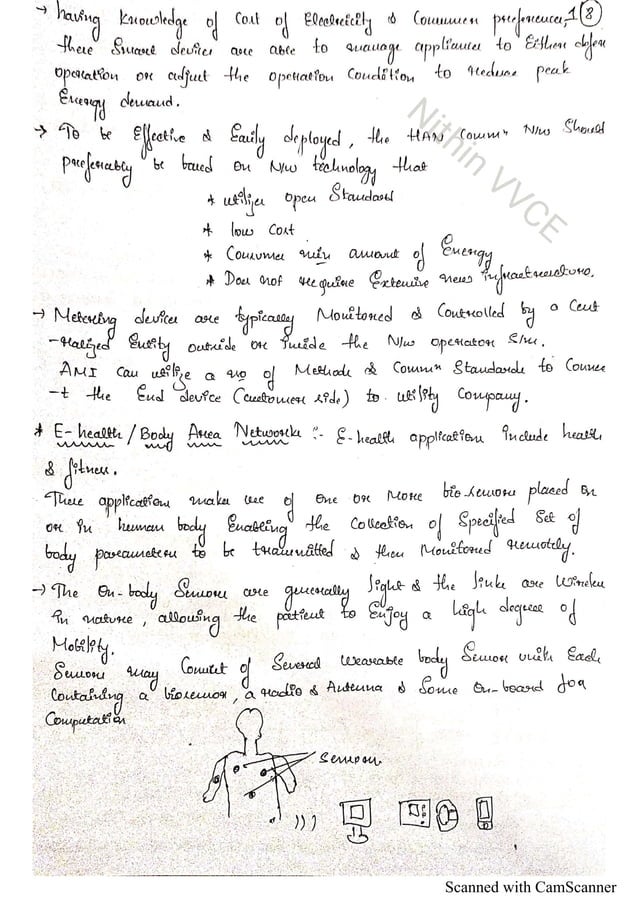 → having knowledge of Cost of Electricity & Consumer preferences, 18
these Smart devices are able to manage appliances to Either defer
operation or adjust the operation Condition to reduce peak
Energy demand.
→ To be Effective & Easily deployed, the HAN Commⁿ N/w Should
preferably be based on N/w technology that
* utilizes open Standard
* low Cost
* Consumes min amount of Energy
* Does not require Extensive new infrastructure.
→ Metering devices are typically Monitored & Controlled by a Cent
-ralized Entity outside or inside the N/w operator S/m.
AMI Can utilize a no of Methods & Commⁿ Standards to Connec
-t the End device (customer side) to utility Company.
* E-health / Body Area Networks :- E-health applications include health
& fitness.
These applications make use of one or More bio-sensors placed on
or in human body Enabling the Collection of Specified Set of
body parameters to be transmitted & then Monitored remotely.
→ The On-body Sensors are generally light & the links are Wireless
in nature, allowing the patient to Enjoy a high degree of
Mobility.
Sensors may Consist of Several wearable body Sensor units Each
Containing a biosensor, a radio & Antenna & Some On-board for
Computation
Sensors
Nithin VVCE
Scanned with CamScanner